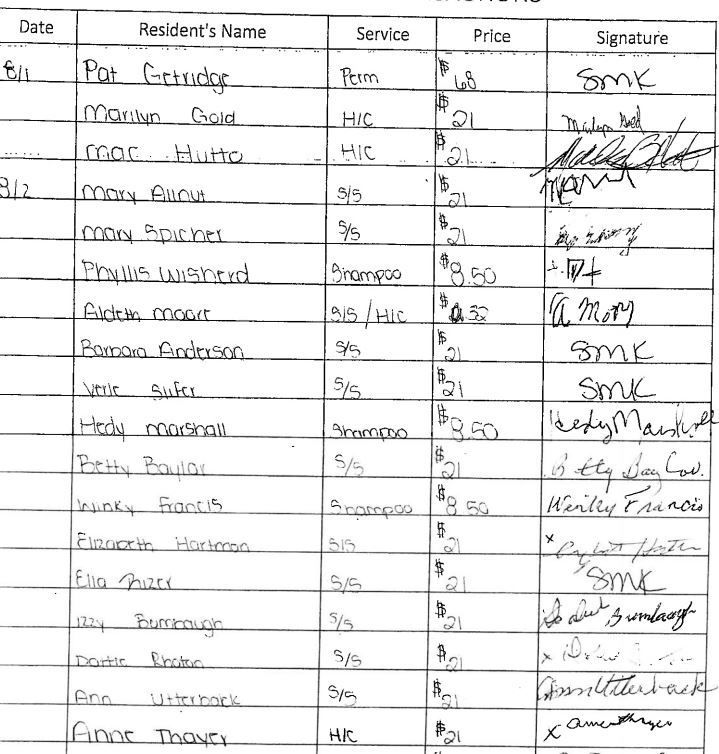 Date Resident's Name Service Price Signature
8/1 Pat Getridge Perm $68 SMK
Marilyn Gold H/C $21 Marilyn Gold
Mac Hutto H/C $21
8/2 Mary Allnut S/S $21
Mary Spicher S/S $21
Phyllis Wisherd Shampoo $8.50
Aldeth Moore S/S / H/C $32 A Mory
Barbara Anderson S/S $21 SMK
Verle Sufer S/S $21 SMK
Hedy Marshall Shampoo $8.50 Hedy Marshall
Betty Baylor S/S $21 Betty Bay
Winky Francis Shampoo $8.50 Winky Francis
Elizabeth Hartman S/S $21 x
Ella Rizer S/S $21 SMK
Izzy Bumbaugh S/S $21
Dottie Rhoton S/S $21 x
Ann Utterback S/S $21 Ann Utterback
Anne Thayer H/C $21 x Anne Thayer